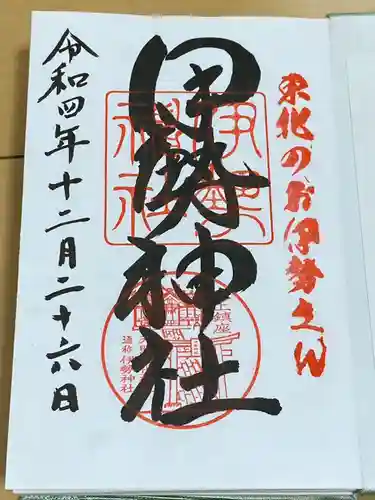 東北のお伊勢さん
伊勢神社
伊勢神社
鎮座
通称伊勢神社
令和四年十二月二十六日